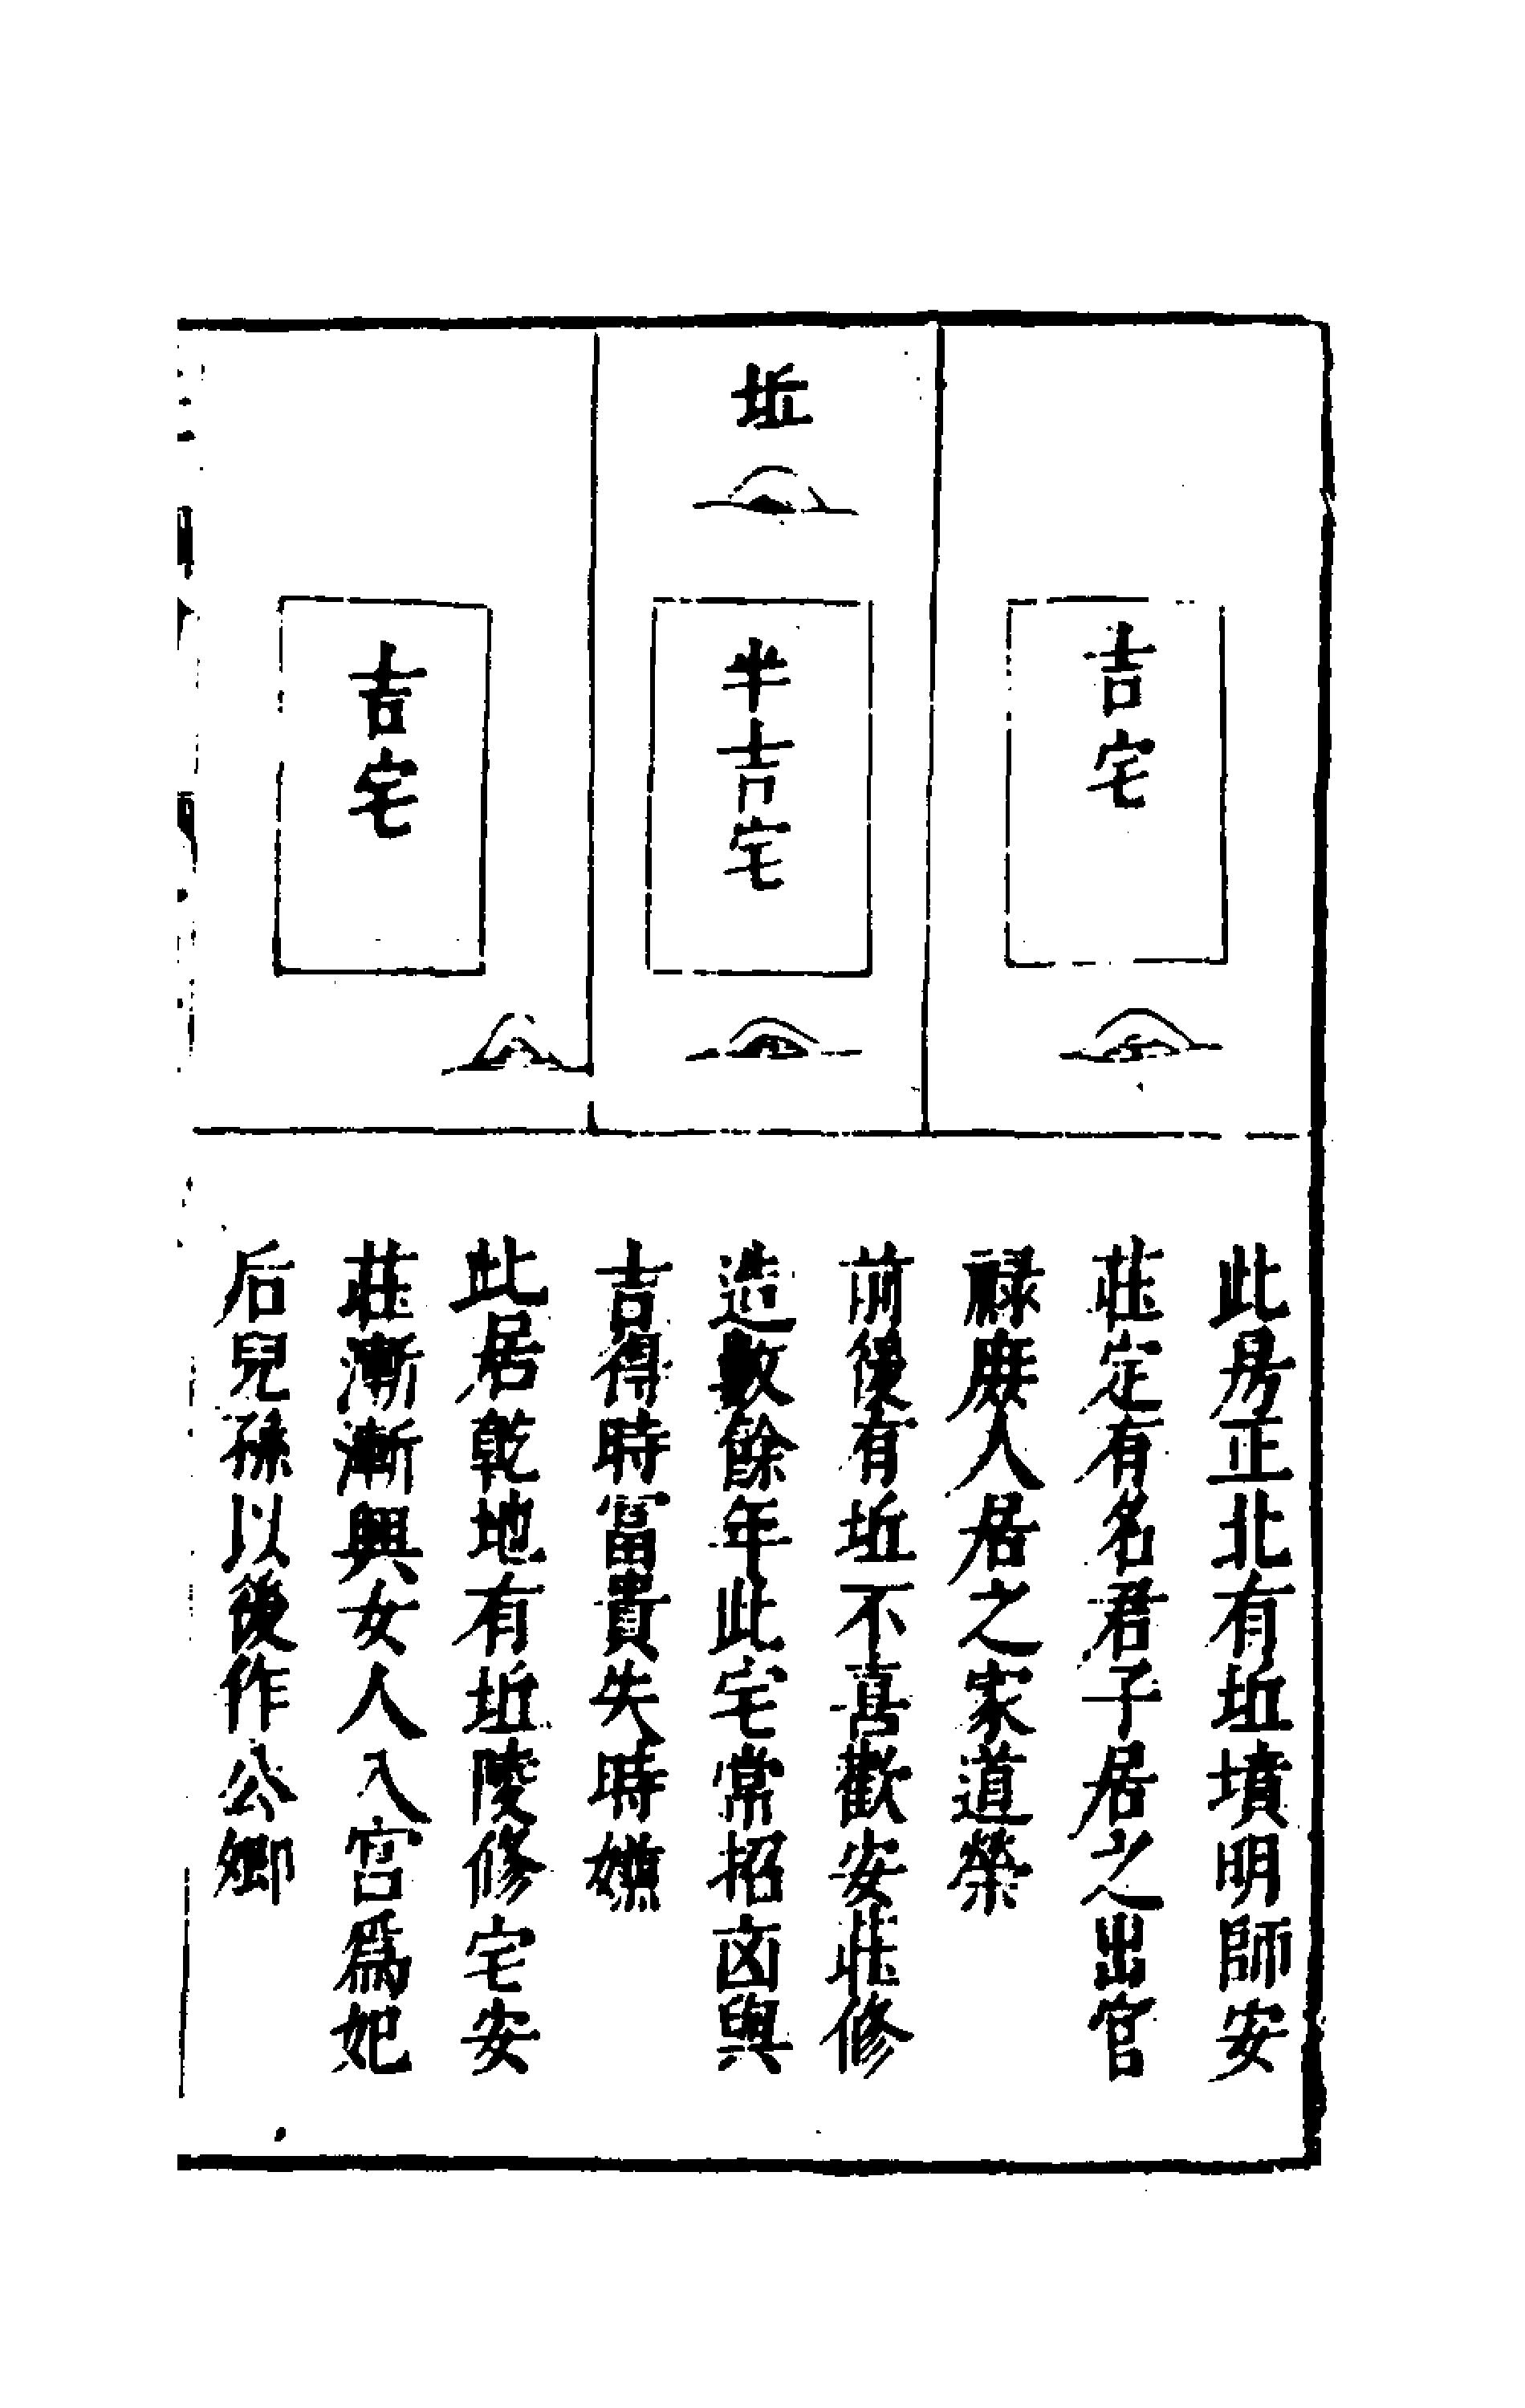 吉宅
坵
半吉宅
吉宅
此居正北有坵墳明師安
莊定有名君子居之出官
祿庶人居之家道榮
前後有坵不喜歡安莊修
造數餘年此宅常招凶與
吉得時富貴失時嫌
此居乾地有坵陵修宅安
莊漸漸興女人入宮爲妃
后兒孫以後作公卿